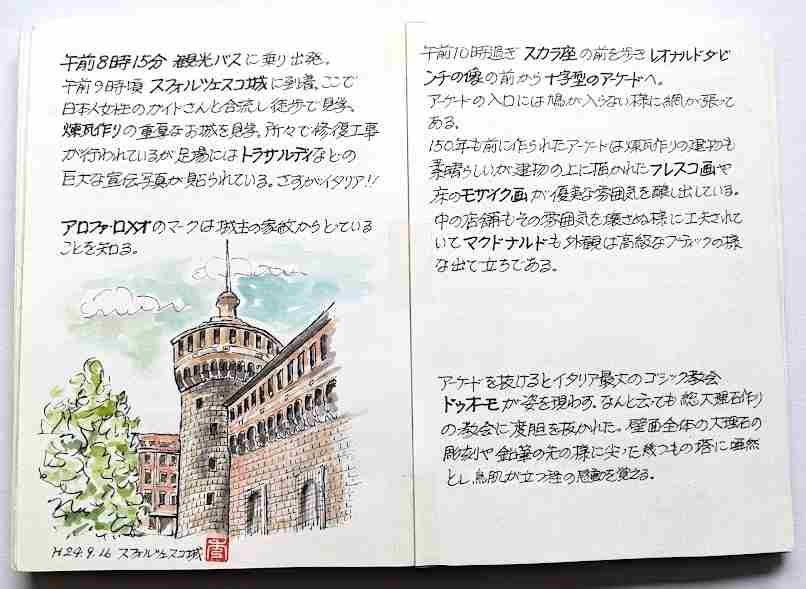 午前8時15分 観光バスに乗り出発。
午前9時頃 スフォルツェスコ城に到着、ここで
日本人女性のガイドさんと合流し徒歩で見学。
煉瓦作りの重厚なお城を見学。所々で修復工事
が行われているが足場にはトラサルディなどの
巨大な宣伝写真が貼られている。さすがイタリア!!
アロファ・ロメオのマークは城主の家紋からとっている
ことを知る。
H24.9.16 スフォルツェスコ城
午前10時過ぎ スカラ座の前を歩きレオナルドダビ
ンチの像の前から十字型のアーケードへ。
アーケードの入口には鳩が入らない様に網が張って
ある。
150年も前に作られたアーケードは煉瓦作りの建物も
素晴らしいが建物の上に描かれたフレスコ画や
床のモザイク画が優美な雰囲気を醸し出している。
中の店舗もその雰囲気を壊さぬ様に工夫されて
いてマクドナルドも外観は高級なブティックの様
な出で立ちである。
アーケードを抜けるとイタリア最大のゴシック教会
ドゥオーモが姿を現わす。なんと云っても総大理石作り
の教会に度胆を抜かれた。壁面全体の大理石の
彫刻や鉛筆の先の様に尖った幾つもの塔に唖然
とし鳥肌が立つ程の感動を覚える。